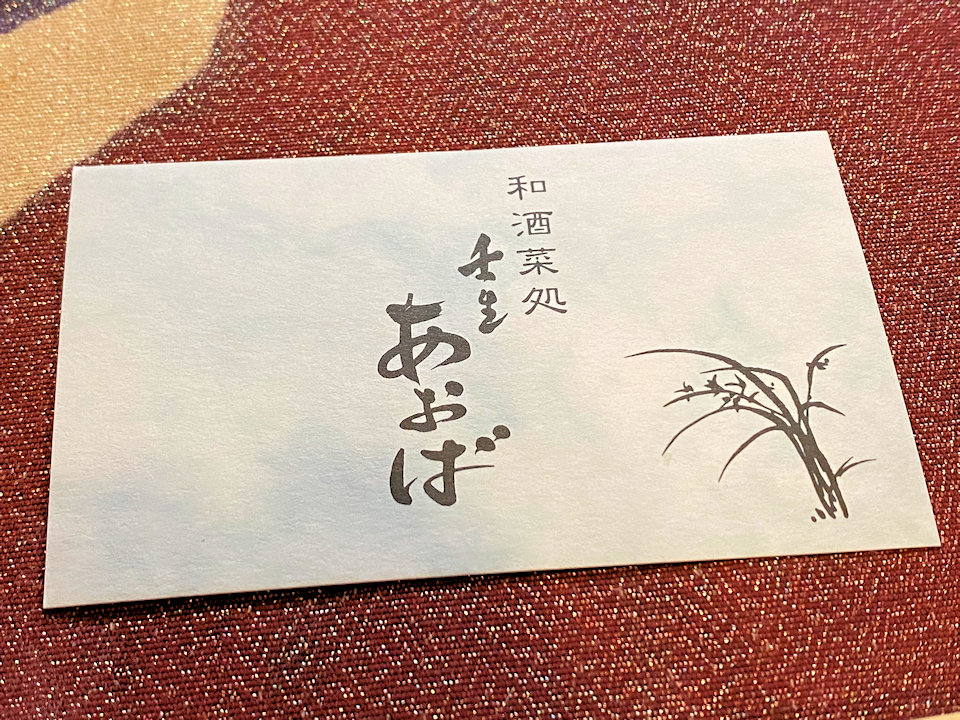 和酒菜処
壬生
あおば